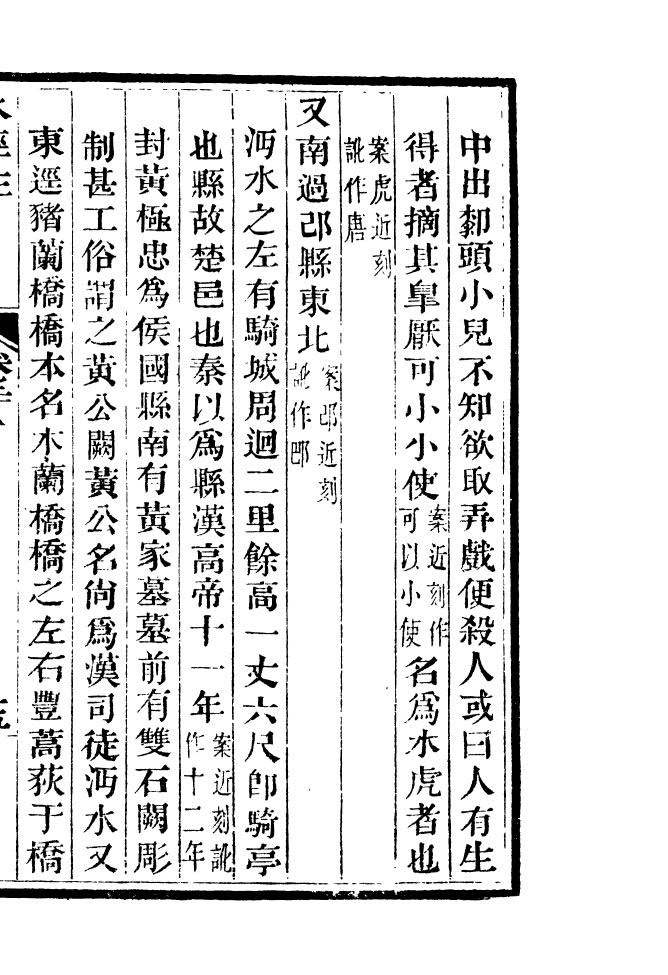 中出𩑶頭小兒不知欲取弄戲便殺人或曰人有生
得者摘其臯厭可小小使案近刻作可以小使名爲水虎者也
案虎近刻訛作唐
又南過邔縣東北案邔近刻訛作䣕
沔水之左有騎城周迴二里餘高一丈六尺卽騎亭
也縣故楚邑也秦以爲縣漢高帝十一年案近刻訛作十二年
封黃極忠爲侯國縣南有黃家墓墓前有雙石闕彫
制甚工俗謂之黃公闕黃公名尙爲漢司徒沔水又
東逕豬蘭橋橋本名木蘭橋橋之左右豐蒿荻于橋
水經注
卷二十八